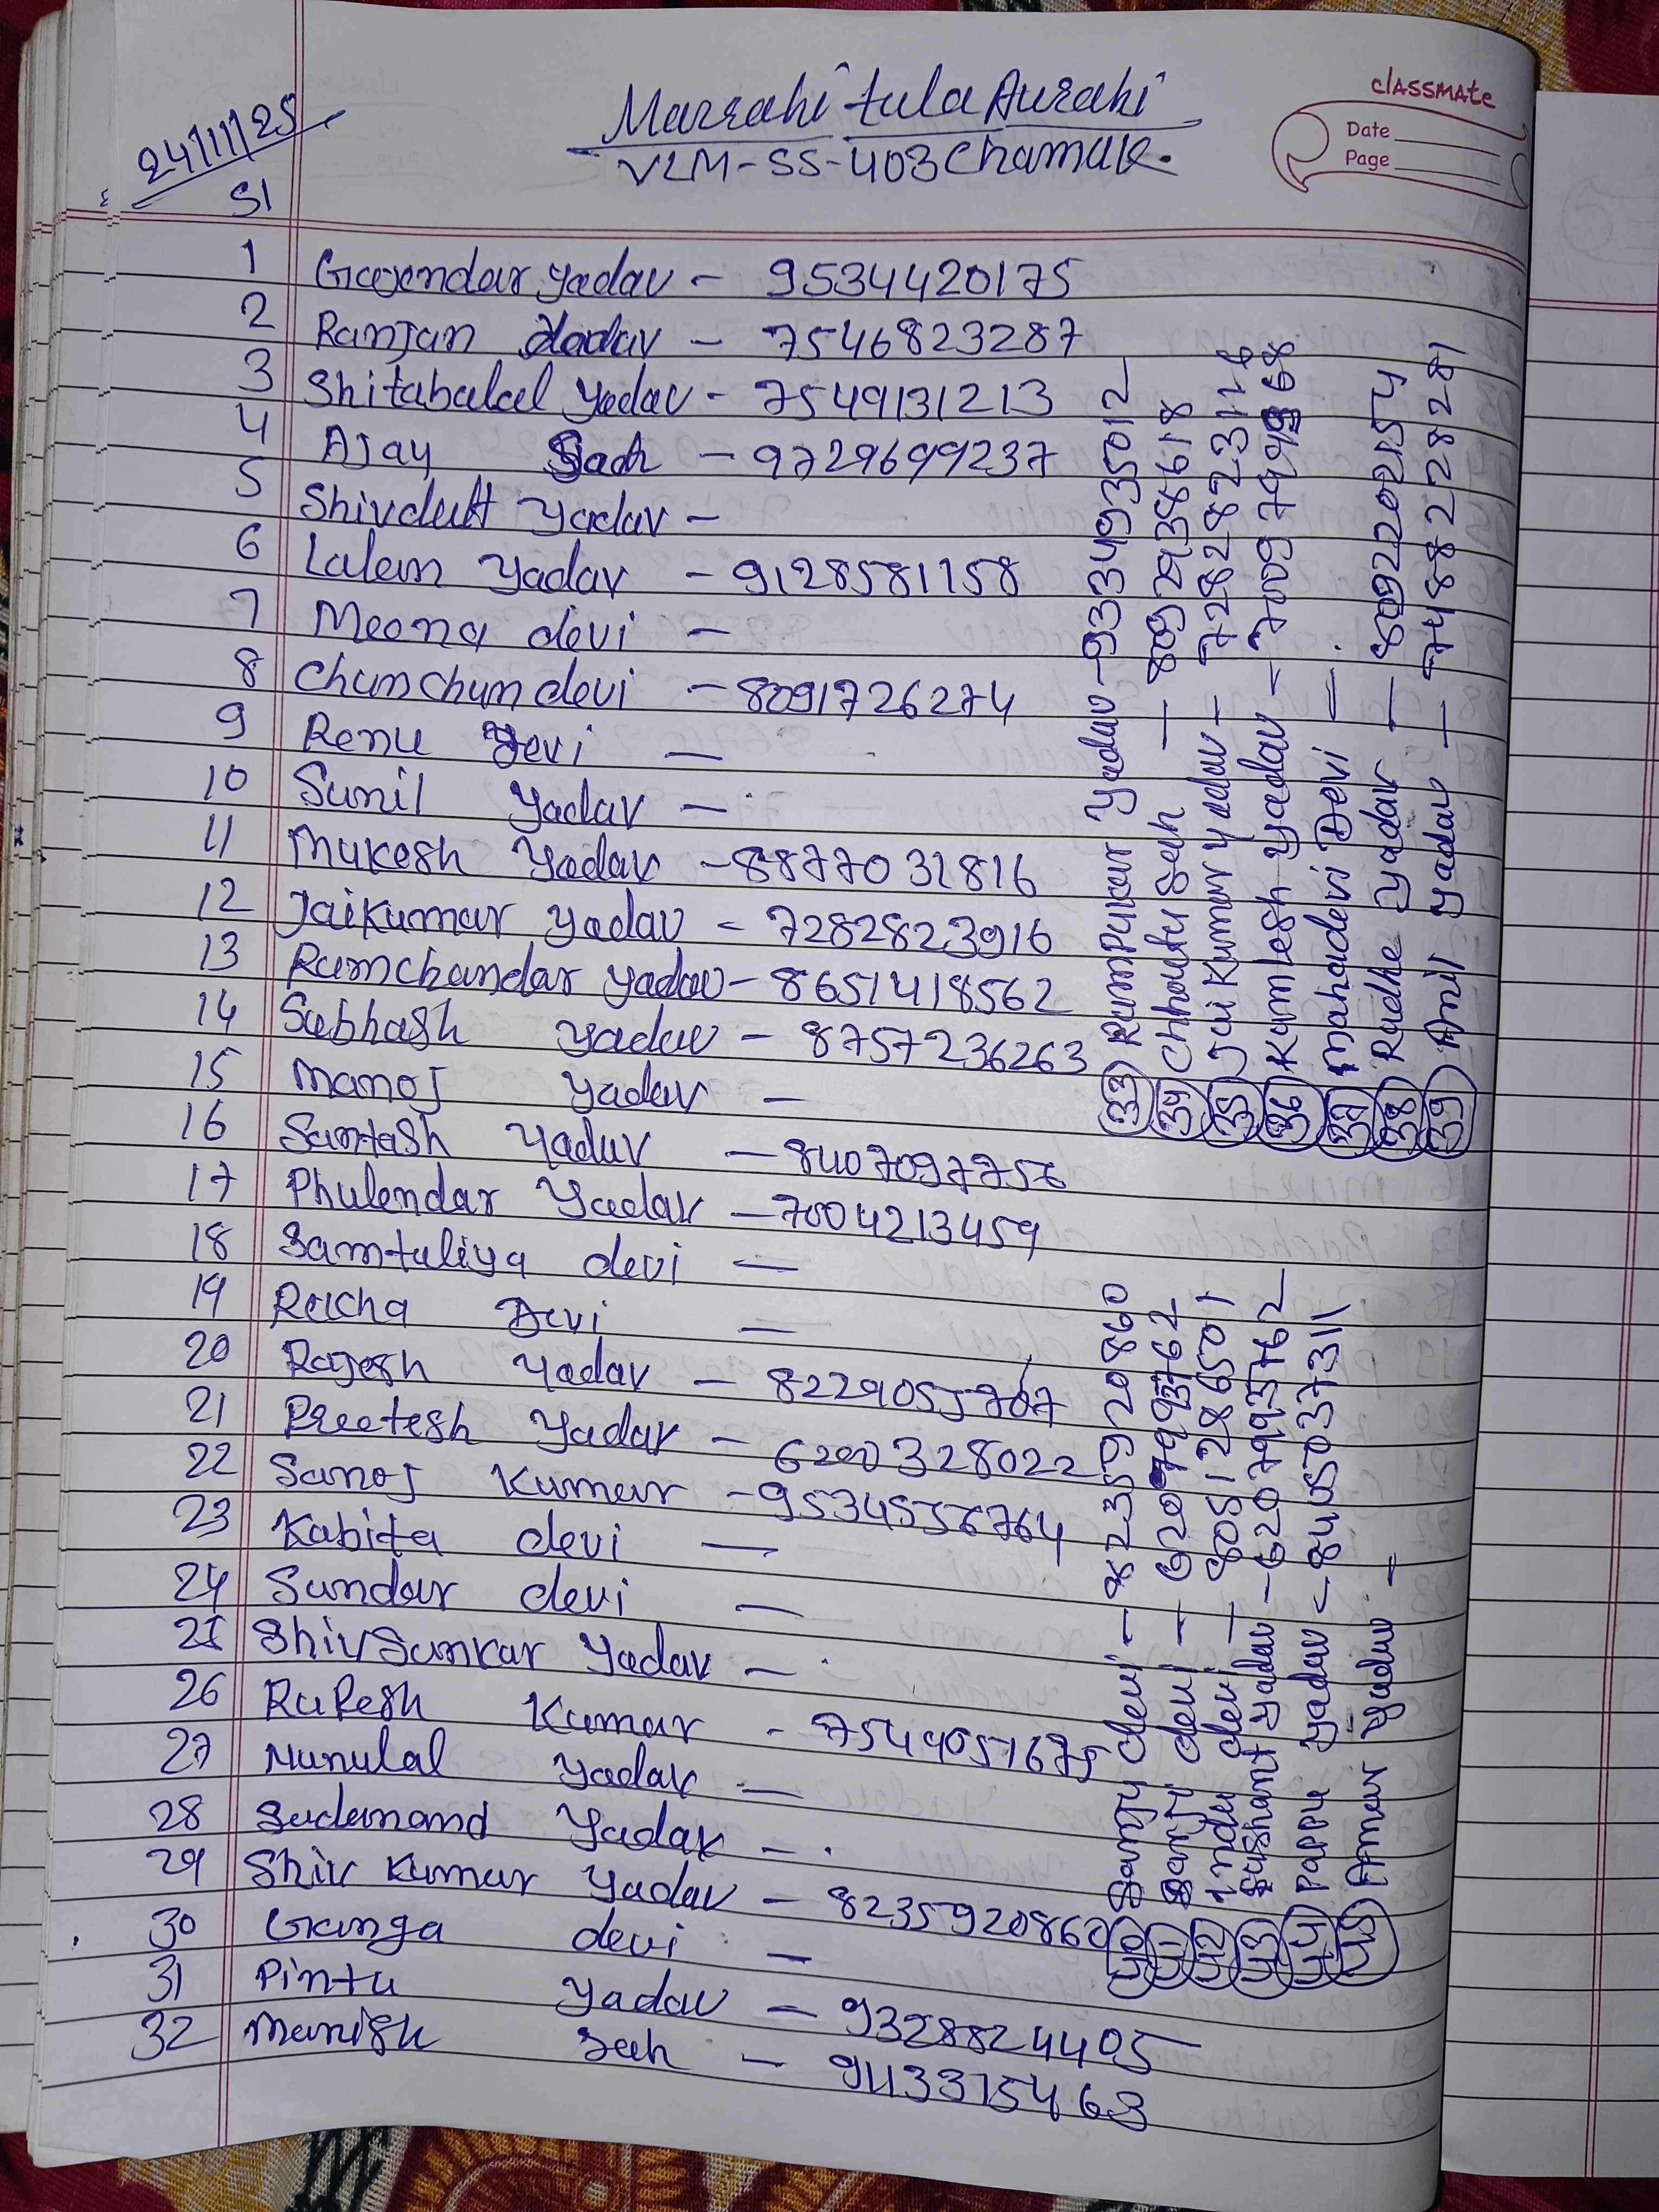 classmate
Date
Page
24/11/25
Marrahi tula Aurahi
VLM-SS-403 Chamak.
Sl
1 Gajendar Yadav - 9534420175
2 Ranjan Yadav - 7546823287
3 Shitabalal Yadav - 7549131213
4 Ajay Sah - 9729699237
5 Shivdutt Yadav -
6 Lalan Yadav - 9128581158
7 Meena devi -
8 Chunchun devi - 8091726274
9 Renu Devi -
10 Sunil Yadav -
11 Mukesh Yadav - 8877031816
12 Jaikumar Yadav - 7282823916
13 Ramchandar Yadav - 8651418562
14 Subhash Yadav - 8757236263
15 Manoj Yadav -
16 Santosh Yadav - 8407097756
17 Phulendar Yadav - 7004213459
18 Samtuliya devi -
19 Racha Devi -
20 Rajesh Yadav - 8229055707
21 Preetesh Yadav - 6200328022
22 Sanoj Kumar - 9534556764
23 Kabita devi -
24 Sundar devi -
25 ShivSankar Yadav -
26 Rupesh Kumar - 7544051675
27 Nunulal Yadav -
28 Sudanand Yadav -
29 Shiv Kumar Yadav - 8235920860
30 Ganga devi -
31 Pintu Yadav - 9328824405
32 Manish Sah - 9113315463
33 Rampukar Yadav - 9334935012
34 Chhoutu Sah - 8092938618
35 Jai Kumar Yadav - 7282823116
36 Kamlesh Yadav - 7009799868
37 Mahadevi Devi -
38 Radhe Yadav - 8092202154
39 Anil Yadav - 7488228281
40 Sanju devi - 8235920860
41 Sanju devi - 6207993762
42 Indu devi - 8051286501
43 Sushant Yadav - 6207993762
44 Pappu Yadav - 8405037311
45 Amar Yadav -